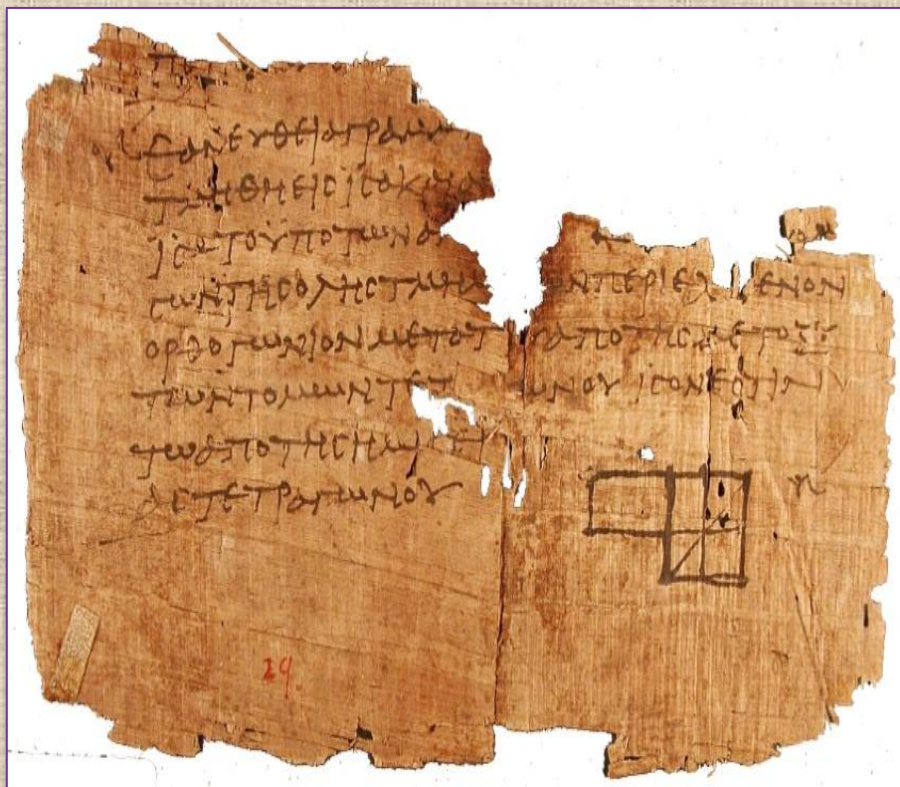 ΕΑΝ ΕΥΘΕΙΑ ΓΡΑΜ
ΤΜΗΘΗ ΕΙϹ ΙϹΑ ΚΑΙ Α
ΙϹΑ ΤΟ ΥΠΟ ΤΩΝ Α
ϹΩΝ ΤΗϹ ΟΛΗϹ ΤΜΗΜ Ν ΠΕΡΙΕΧ ΕΝΟΝ
ΟΡΘΟΓΩΝΙΟΝ ΜΕΤΑ Τ ΑΠΟ ΤΗϹ ΜΕΤΟΞΥ
ΤΩΝ ΤΟΜΩΝ ΤΕΤ ΩΝΟΥ ΙϹΟΝ ΕϹΤΙΝ
ΤΩ ΑΠΟ ΤΗϹ ΗΜΙϹΕΙ
ΑϹ ΤΕΤΡΑΓΩΝΟΥ
29